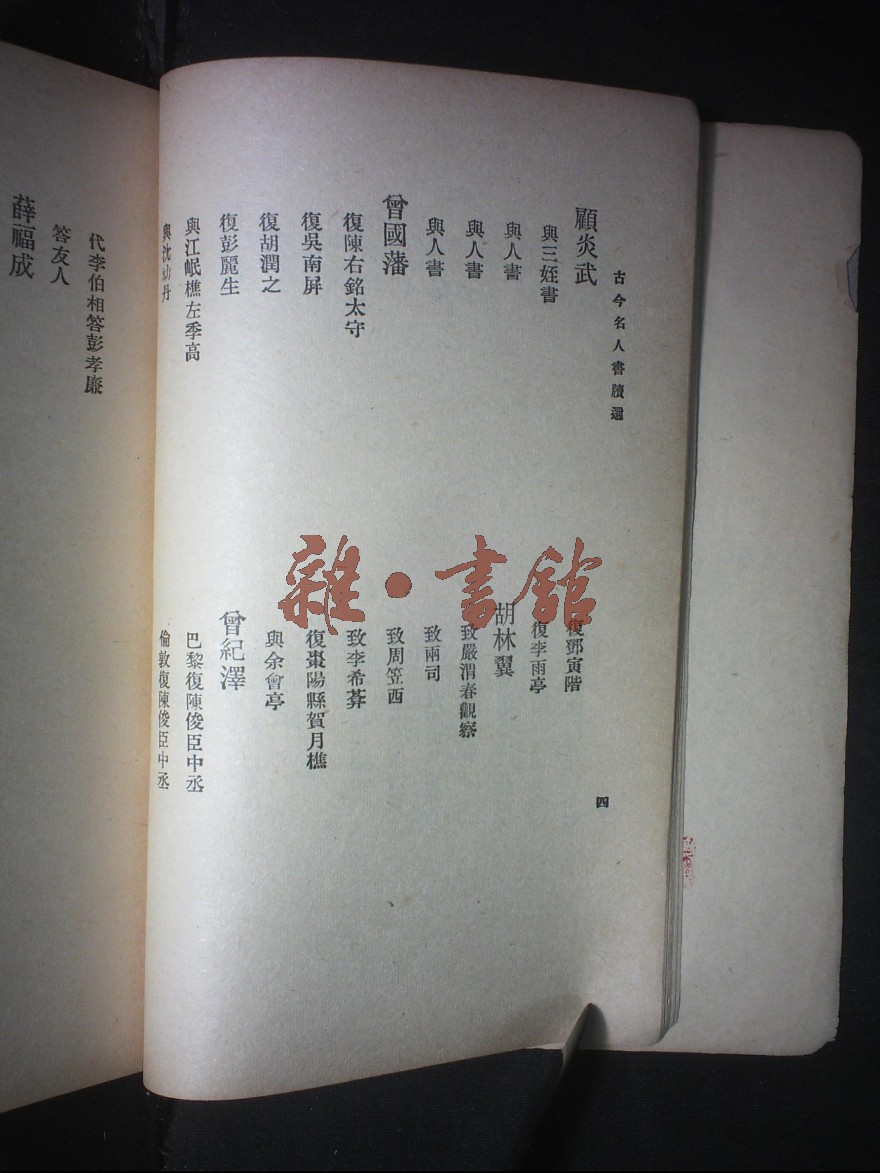 古今名人書牘選
顧炎武
與三姪書
與人書
與人書
與人書
曾國藩
復陳右銘太守
復吳南屏
復胡潤之
復彭麗生
與江岷樵左季高
與沈幼丹
復鄧寅階
復李雨亭
胡林翼
致嚴渭春觀察
致兩司
致周笠西
致李希菴
復棗陽縣賀月樵
與余會亭
曾紀澤
巴黎復陳俊臣中丞
倫敦復陳俊臣中丞
四
代李伯相答彭孝廉
答友人
薛福成
雜·書館